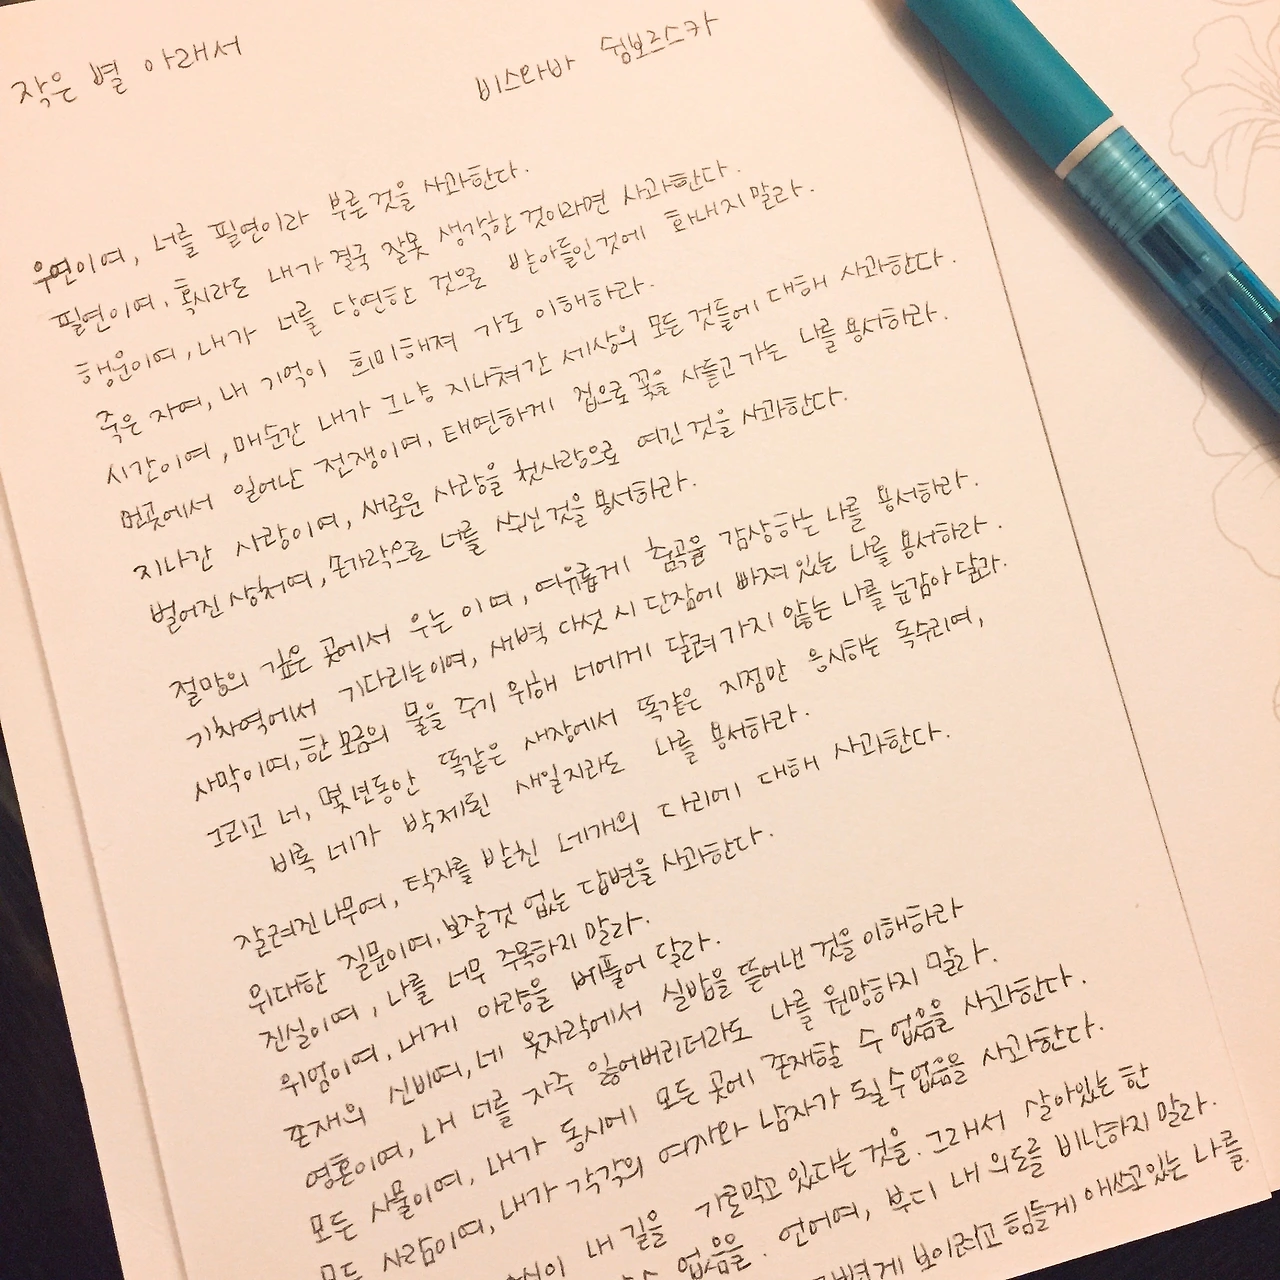 작은 별 아래서
비스와바 쉼보르스카
우연이여, 너를 필연이라 부른 것을 사과한다.
필연이여, 혹시라도 내가 결국 잘못 생각한 것이라면 사과한다.
행운이여, 내가 너를 당연한 것으로 받아들인 것에 화내지 말라.
죽은 자여, 내 기억이 희미해져 가도 이해하라.
시간이여, 매순간 내가 그냥 지나쳐간 세상의 모든 것들에 대해 사과한다.
먼곳에서 일어난 전쟁이여, 태연하게 집으로 꽃을 사들고 가는 나를 용서하라.
지나간 사랑이여, 새로운 사랑을 첫사랑으로 여긴 것을 사과한다.
벌어진 상처여, 손가락으로 너를 쑤신 것을 용서하라.
절망의 깊은 곳에서 우는 이여, 여유롭게 춤곡을 감상하는 나를 용서하라.
기차역에서 기다리는이여, 새벽 다섯 시 단잠에 빠져 있는 나를 용서하라.
사막이여, 한 모금의 물을 주기 위해 너에게 달려가지 않는 나를 눈감아 달라.
그리고 너, 몇 년동안 똑같은 새장에서 똑같은 지점만 응시하는 독수리여,
비록 네가 박제된 새일지라도 나를 용서하라.
잘려진 나무여, 탁자를 받친 네개의 다리에 대해 사과한다.
위대한 질문이여, 보잘것 없는 답변을 사과한다.
진실이여, 나를 너무 주목하지 말라.
위엄이여, 내게 아량을 베풀어 달라.
존재의 신비여, 네 옷자락에서 실밥을 뜯어낸 것을 이해하라
영혼이여, 내 너를 자주 잃어버리더라도 나를 원망하지 말라.
모든 사물이여, 내가 동시에 모든 곳에 존재할 수 없음을 사과한다.
모든 사람이여, 내가 각각의 여자와 남자가 될 수 없음을 사과한다.
내 길을 가로막고 있다는 것을. 그래서 살아있는 한
없음을. 언어여, 부디 내 의도를 비난하지 말라.
보이려고 힘들게 애쓰고 있는 나를.